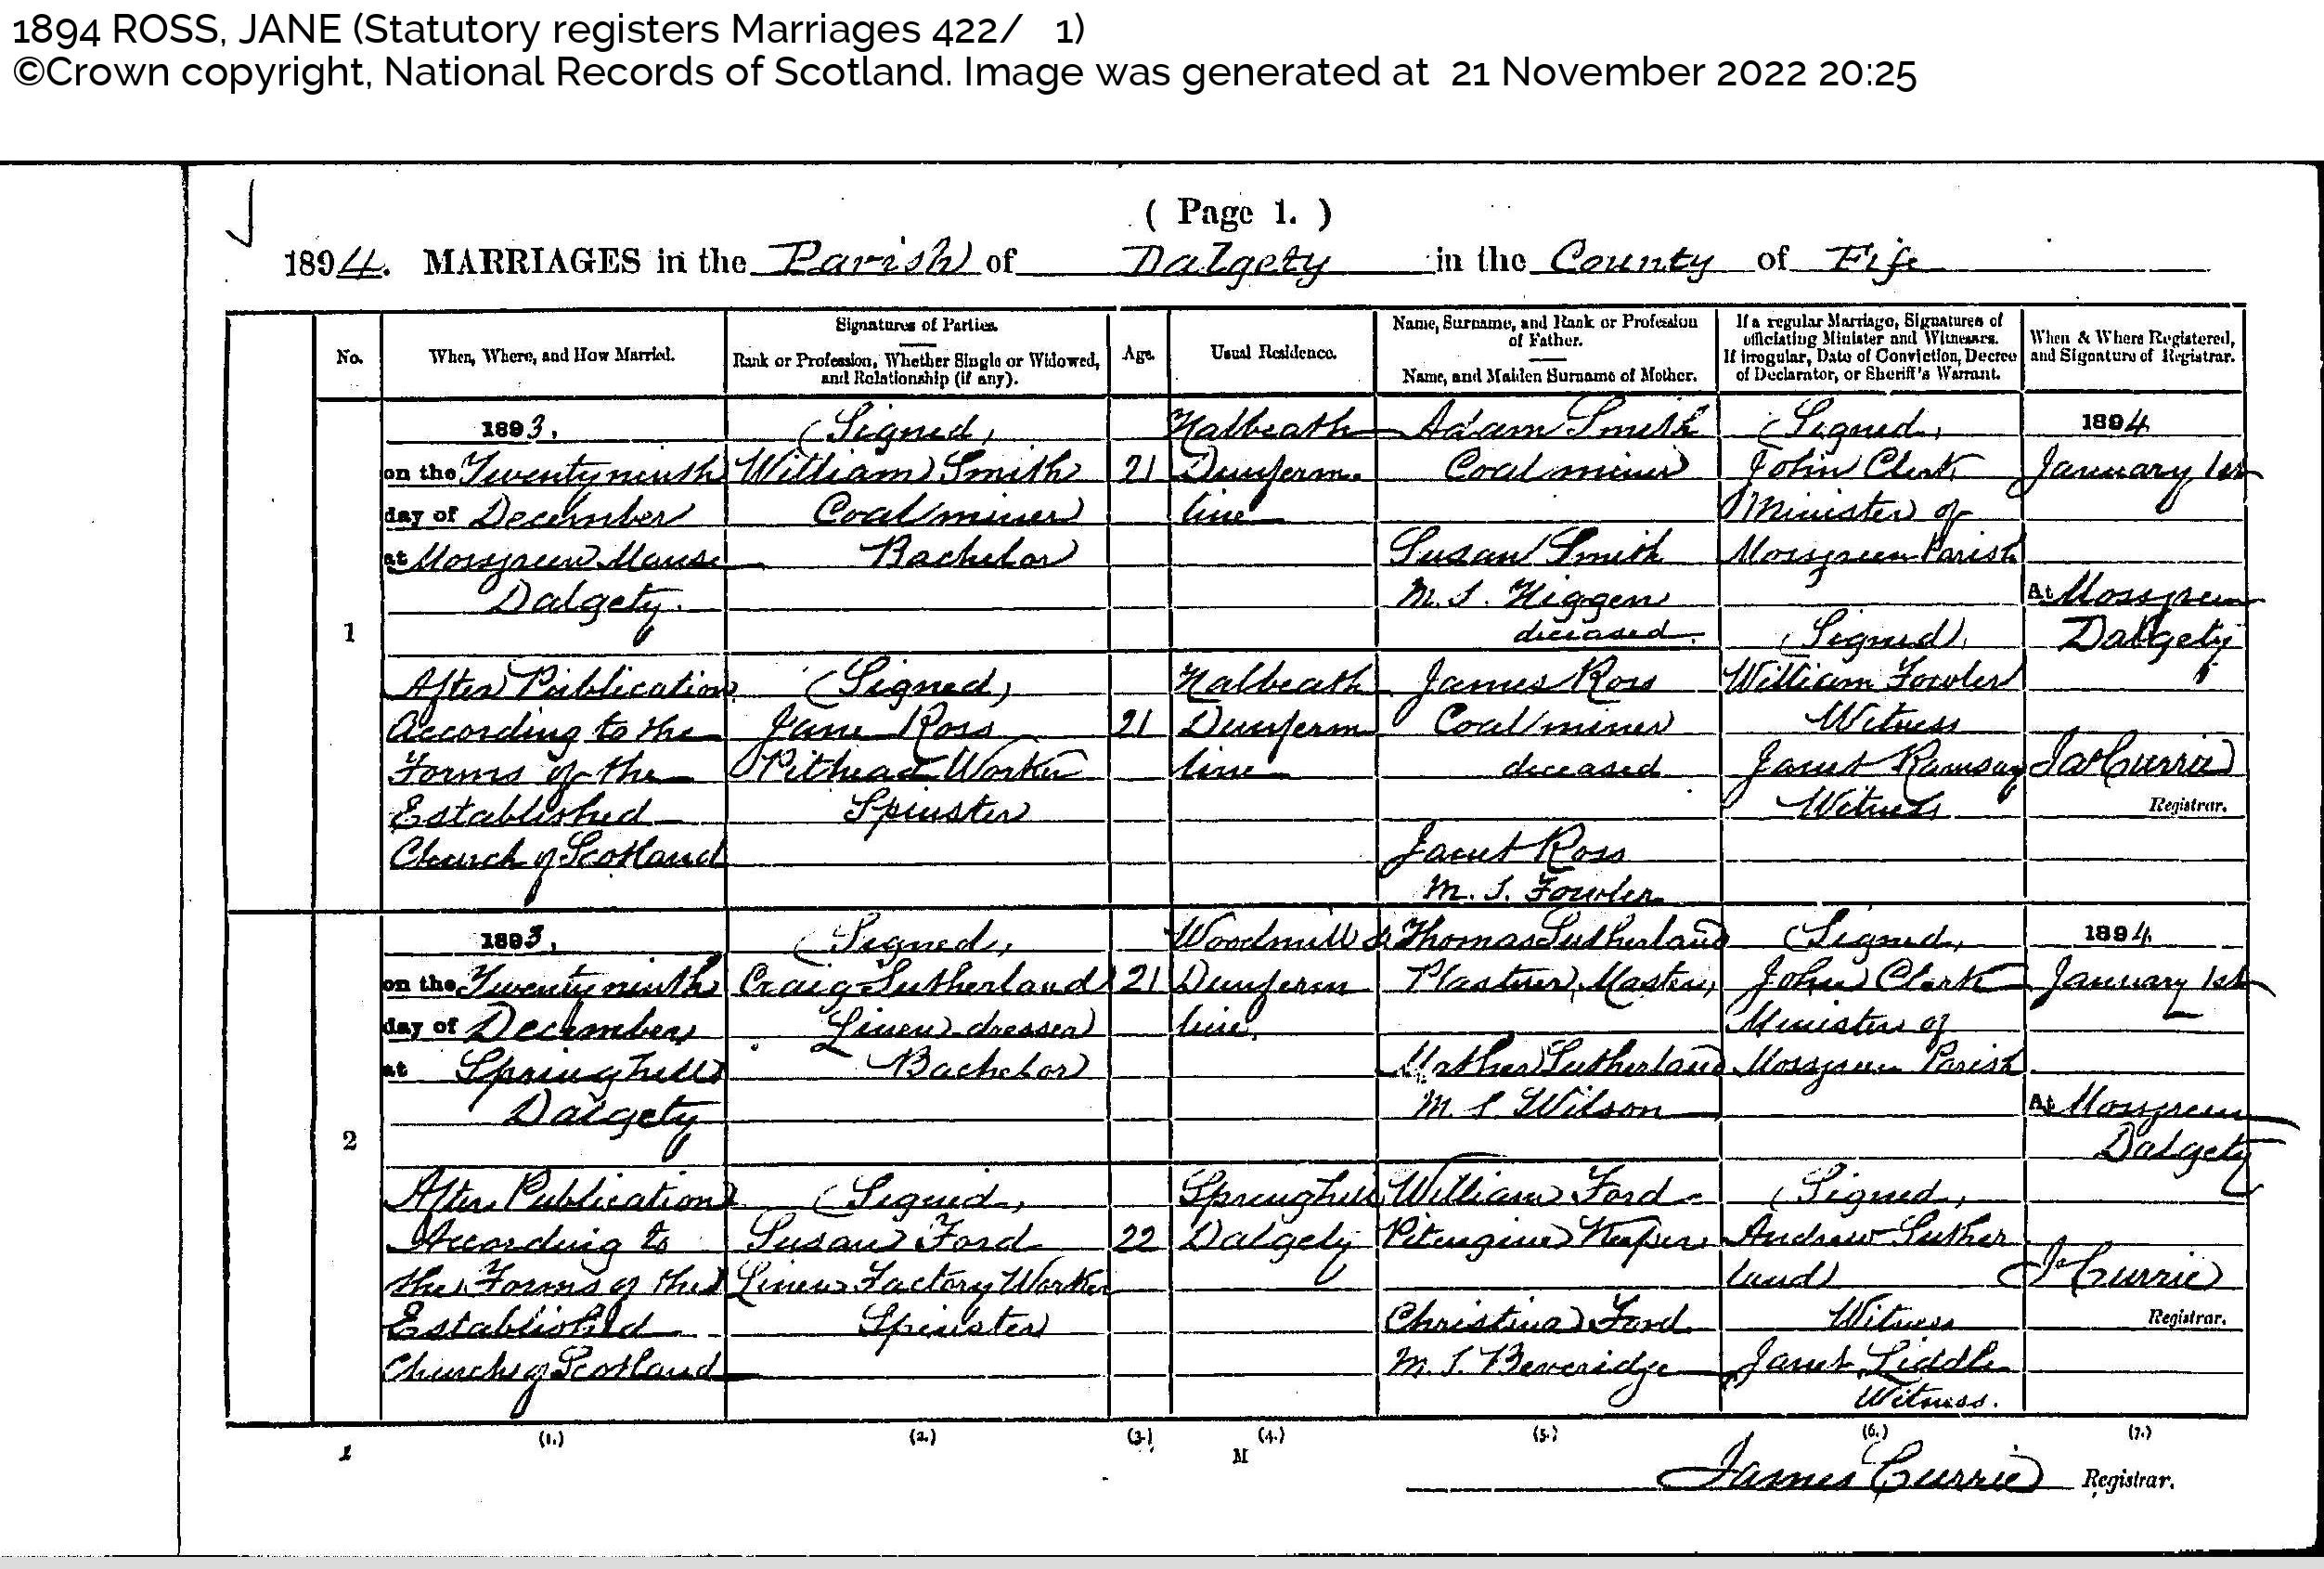 1894 ROSS, JANE (Statutory registers Marriages 422/ 1)
©Crown copyright, National Records of Scotland. Image was generated at 21 November 2022 20:25
( Page 1. )
1894. MARRIAGES in the Parish of Dalgety in the County of Fife
No.
When, Where, and How Married.
Signatures of Parties.
Rank or Profession, Whether Single or Widowed,
and Relationship (if any).
Age.
Usual Residence.
Name, Surname, and Rank or Profession
of Father.
Name, and Maiden Surname of Mother.
If a regular Marriage, Signatures of
officiating Minister and Witnesses.
If irregular, Date of Conviction, Decree
of Declarator, or Sheriff's Warrant.
When & Where Registered,
and Signature of Registrar.
1
1893,
on the Twentyninth
day of December
at Mossgreen Manse
Dalgety.
After Publication
According to the
Forms of the
Established
Church of Scotland
(Signed)
William Smith
Coalminer
Bachelor
(Signed)
Jane Ross
Pithead Worker
Spinster
21
21
Halbeath
Dunferm
line
Halbeath
Dunferm
line
Adam Smith
Coalminer
Susan Smith
M. S. Higgen
deceased.
James Ross
Coalminer
deceased
Janet Ross
M. S. Fowler
(Signed)
John Clark
Minister of
Mossgreen Parish
(Signed)
William Fowler
Witness
Janet Ramsay
Witness
1894
January 1st
At Mossgreen
Dalgety
Jas Currie
Registrar.
2
1893,
on the Twentyninth
day of December
at Springhill
Dalgety
After Publication
According to
the Forms of the
Established
Church of Scotland
(Signed)
Craig Sutherland
Linen dresser
Bachelor
(Signed)
Susan Ford
Linen Factory Worker
Spinster
21
22
Woodmill St
Dunferm
line
Springhill
Dalgety
Thomas Sutherland
Plasterer, Master,
Sutherland
M. S. Wilson
William Ford
Pitengine Keeper
Christina Ford
M. S. Beveridge
(Signed)
John Clark
Minister of
Mossgreen Parish
(Signed)
Andrew Suther
land
Witness
Janet Liddle
Witness.
1894
January 1st
At Mossgreen
Dalgety
Jas Currie
Registrar.
(1.) (2.) (3.) (4.) (5.) (6.) (7.)
1 M
James Currie Registrar.